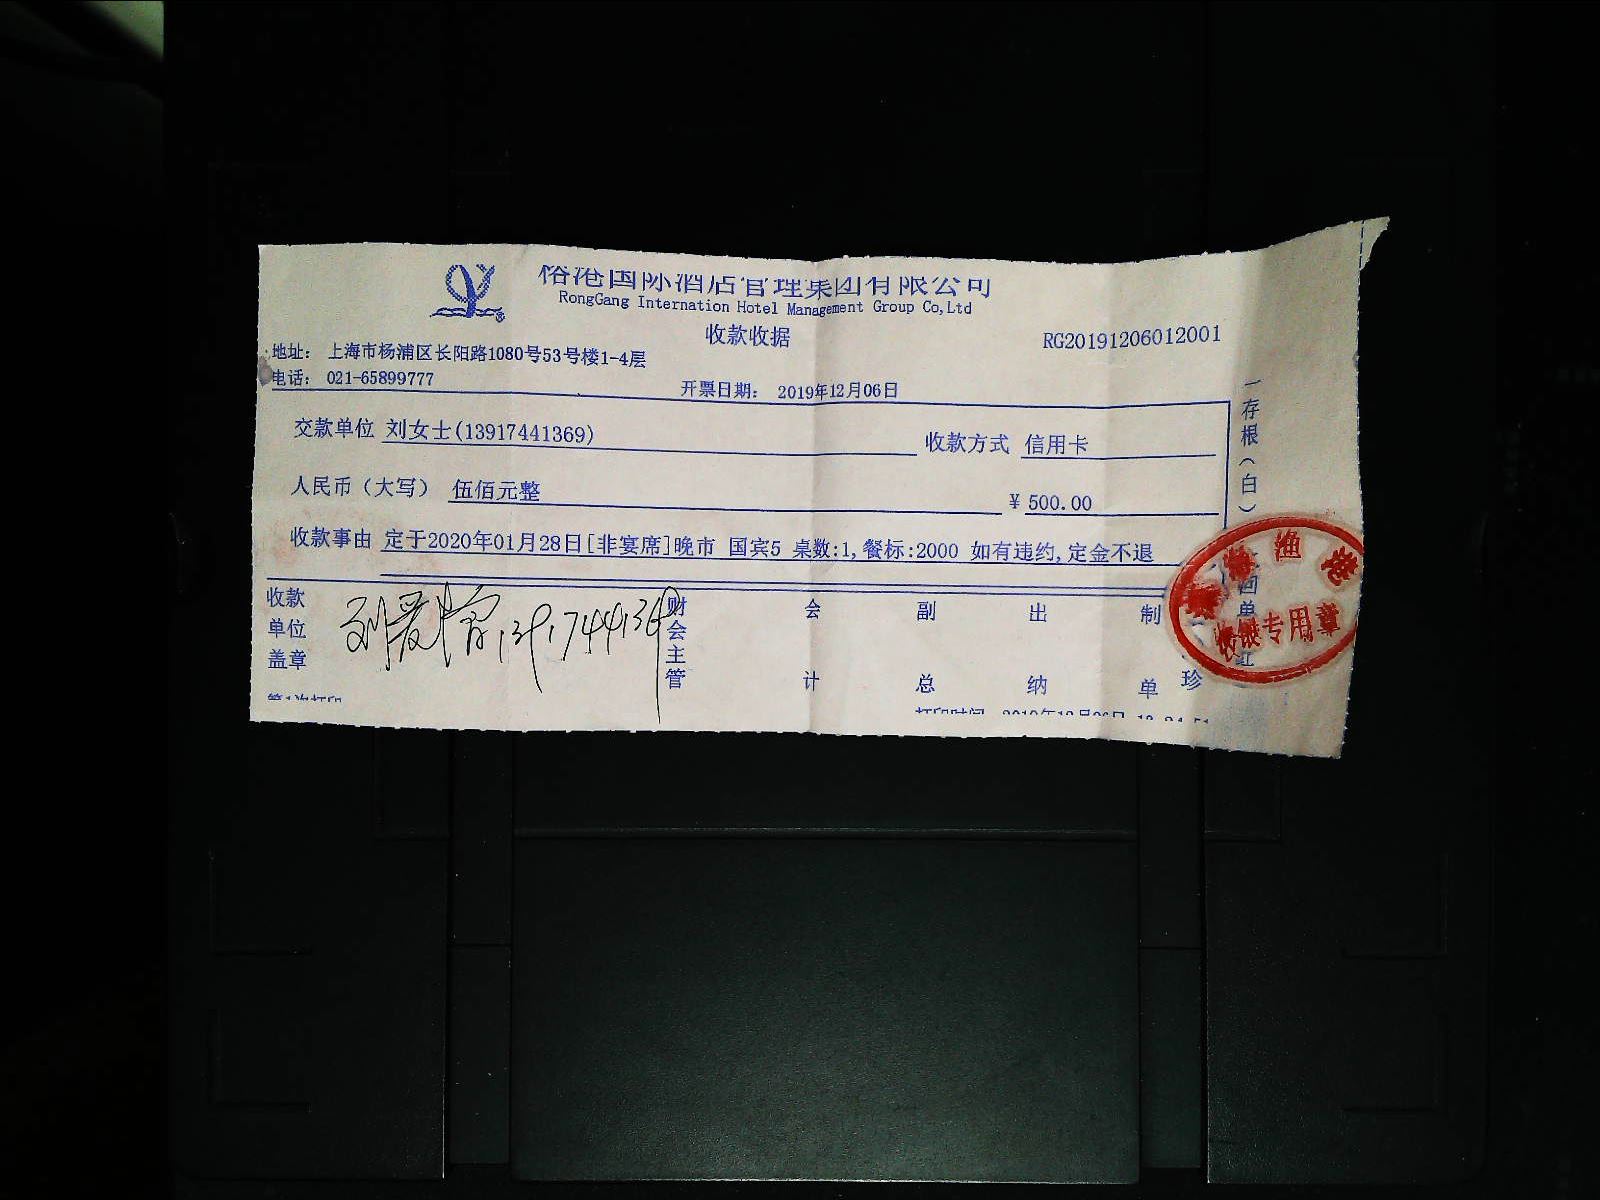 国际酒店管理集团有限公司
RongGang Internation Hotel Management Group Co,Ltd
收款收据
RG20191206012001
地址： 上海市杨浦区长阳路1080号53号楼1-4层
电话： 021-65899777
开票日期： 2019年12月06日
交款单位 刘女士(13917441369)
收款方式 信用卡
人民币（大写） 伍佰元整
￥ 500.00
收款事由 定于2020年01月28日[非宴席]晚市 国宾5 桌数:1,餐标:2000 如有违约,定金不退
收款单位盖章
财会主管
会计
副总
出纳
制单
珍
一存根（白）
渔港
专用章
打印时间 2019年12月06日